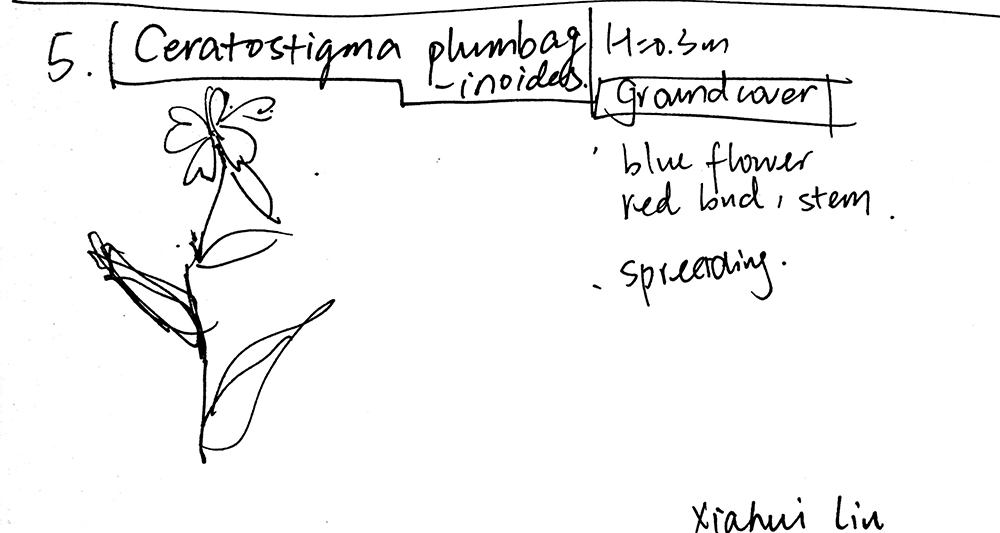 5. Ceratostigma plumbag
-inoides.
H=0.3m
Groundcover
· blue flower
red bud, stem.
· spreading.
Xiahui Lin